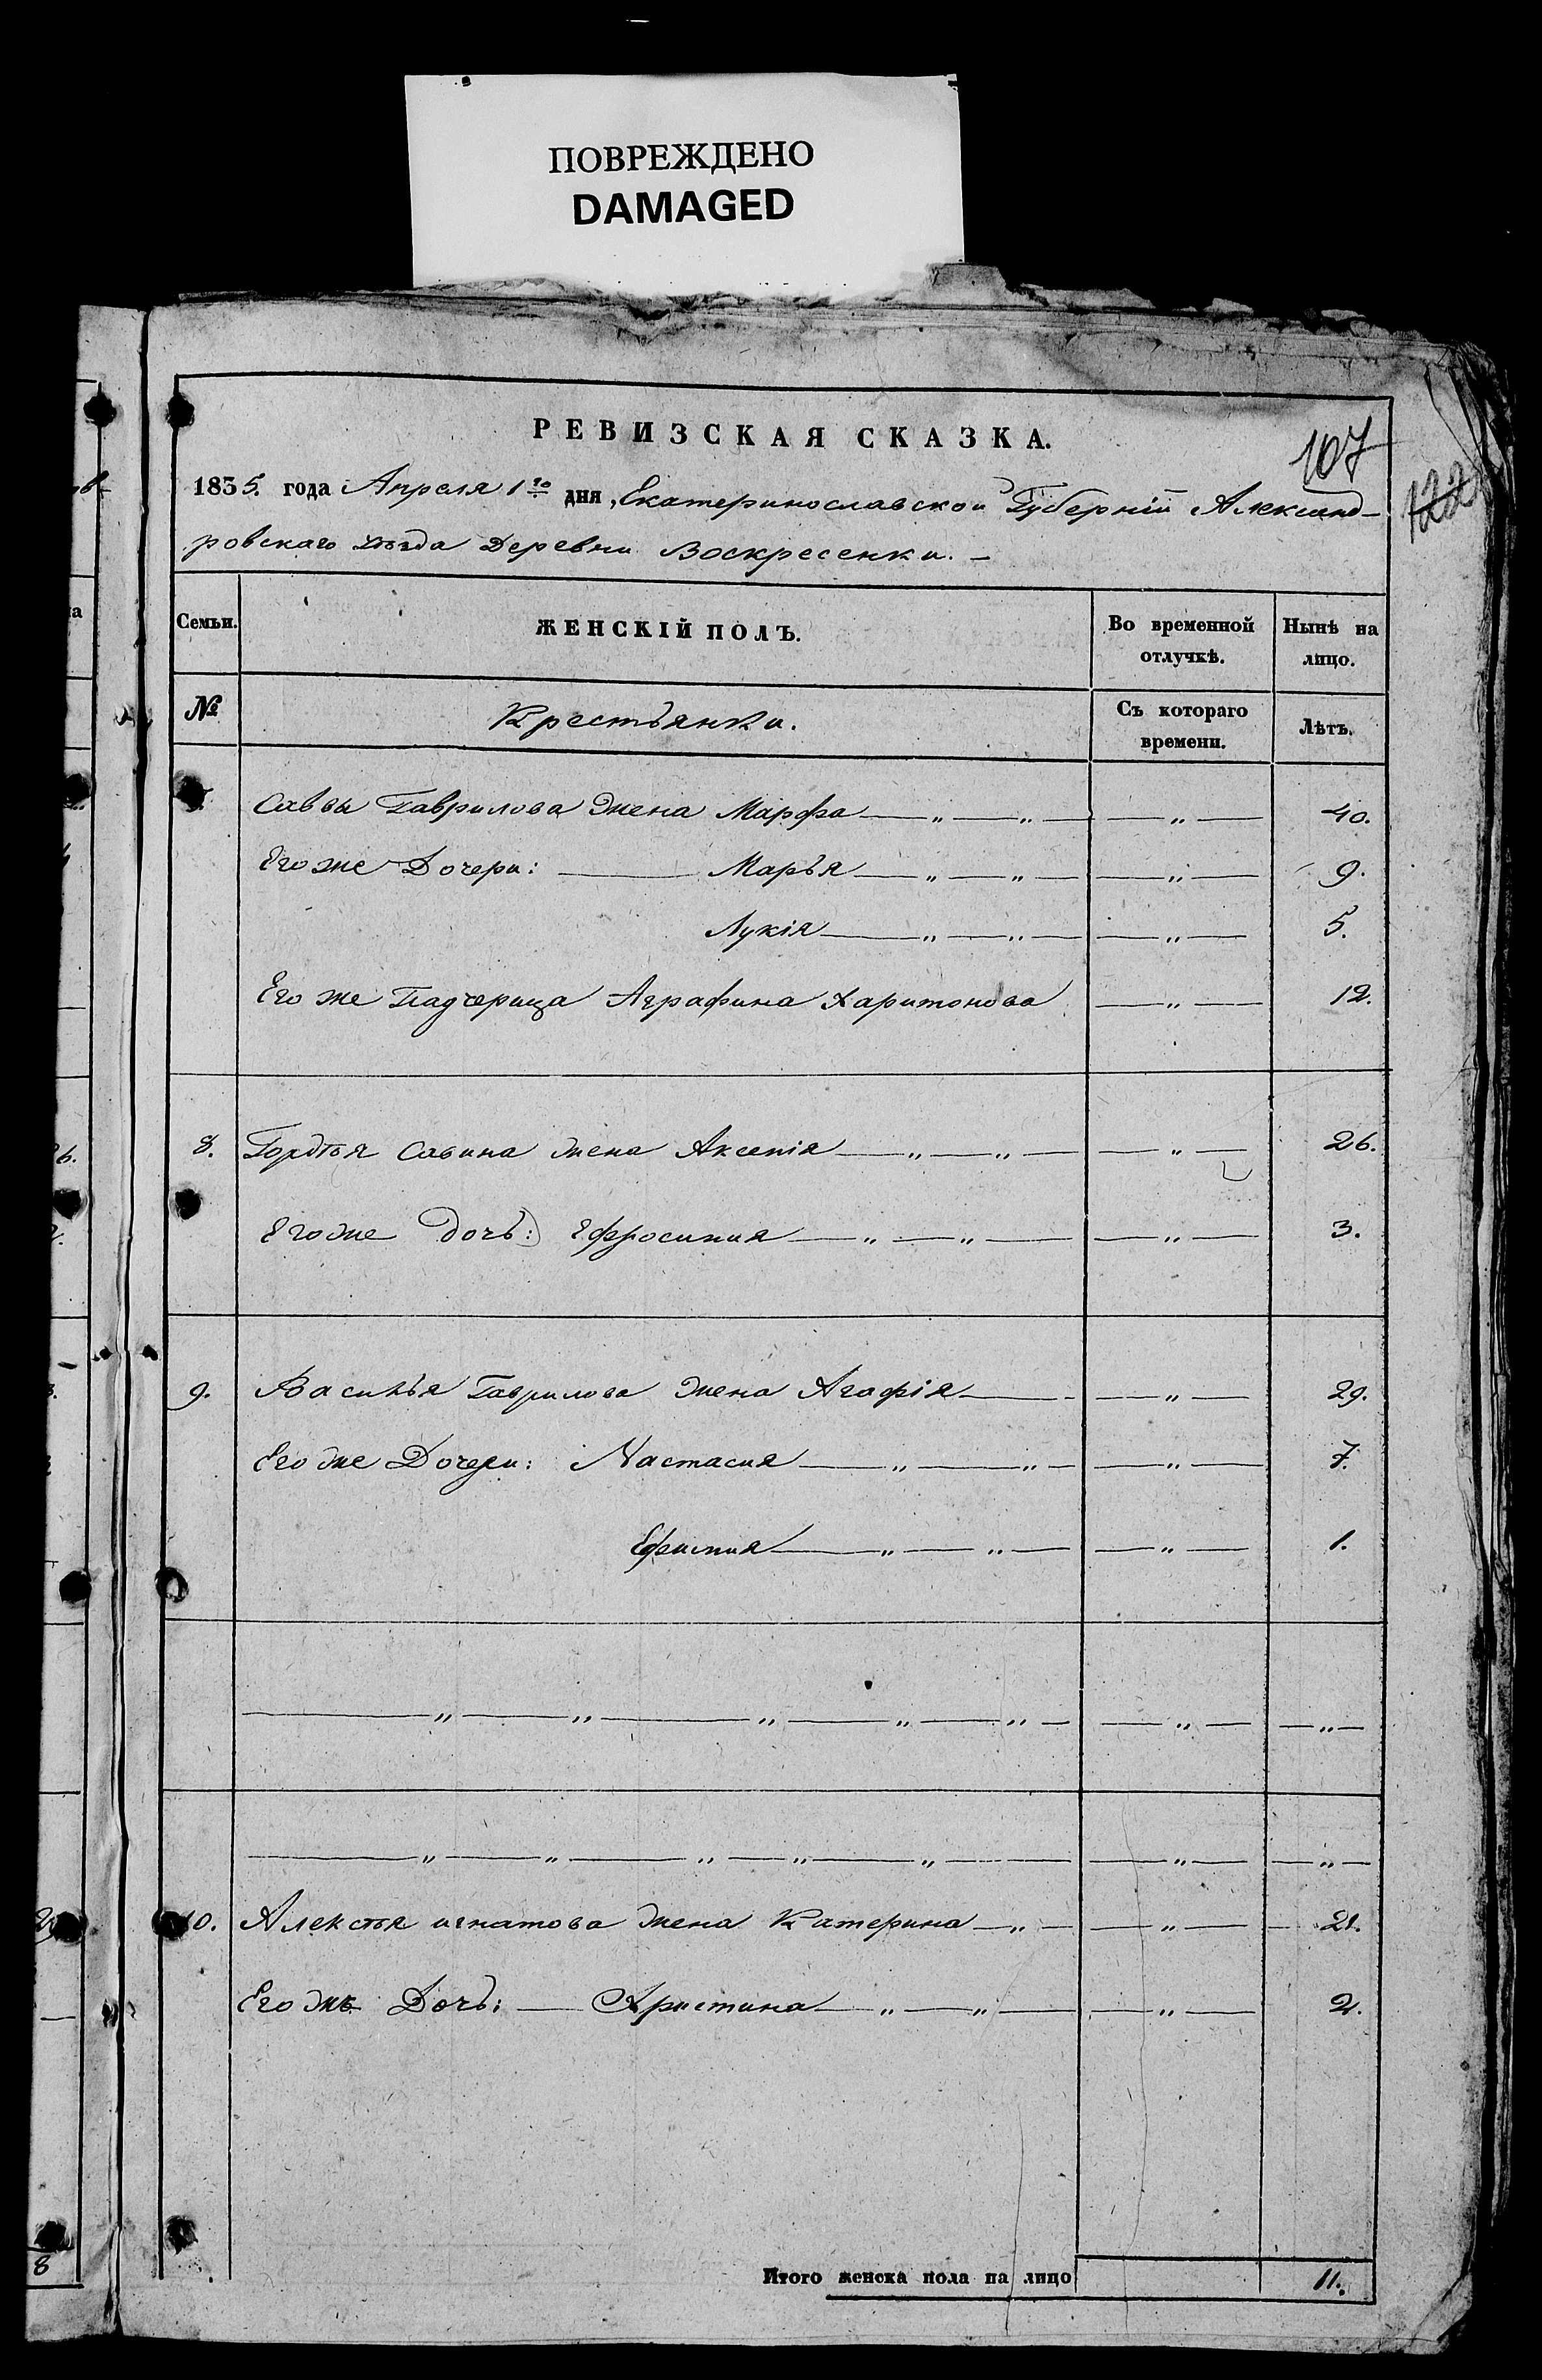 ПОВРЕЖДЕНО
DAMAGED
РЕВИЗСКАЯ СКАЗКА.
107
122
1835. года Апреля 1го дня, Екатеринославской Губерніи Александ-
ровскаго уезда Деревни Воскресенки. —
Семьи. ЖЕНСКІЙ ПОЛЪ. Во временной отлучкѣ. Нынѣ на лицо.
№ Крестьянки. Съ котораго времени. Лѣтъ.
Саввы Гаврилова жена Марфа — „ — „ — — „ — 40.
Его же Дочери: — Марья — „ — „ — — „ — 9.
Лукія — „ — „ — — „ — 5.
Его же Падчерица Аграфина Харитонова — „ — 12.
8. Гордѣя Савина жена Аксенія — „ — „ — — „ — 26.
Его же дочь: Ефросиния — „ — „ — — „ — 3.
9. Василья Гаврилова жена Агафія — — „ — 29.
Его же Дочери: Настасия — „ — „ — — „ — 7.
— „ — „ — — „ — 1.
— „ — „ — „ — „ — „ — — „ — — „ —
— „ — „ — „ — „ — „ — — „ — — „ —
10. Алексѣя игнатова жена Катерина — „ — — „ — 21.
Его же Дочь: — Христина — „ — „ — — „ — 2.
Итого женска пола на лицо 11.
8